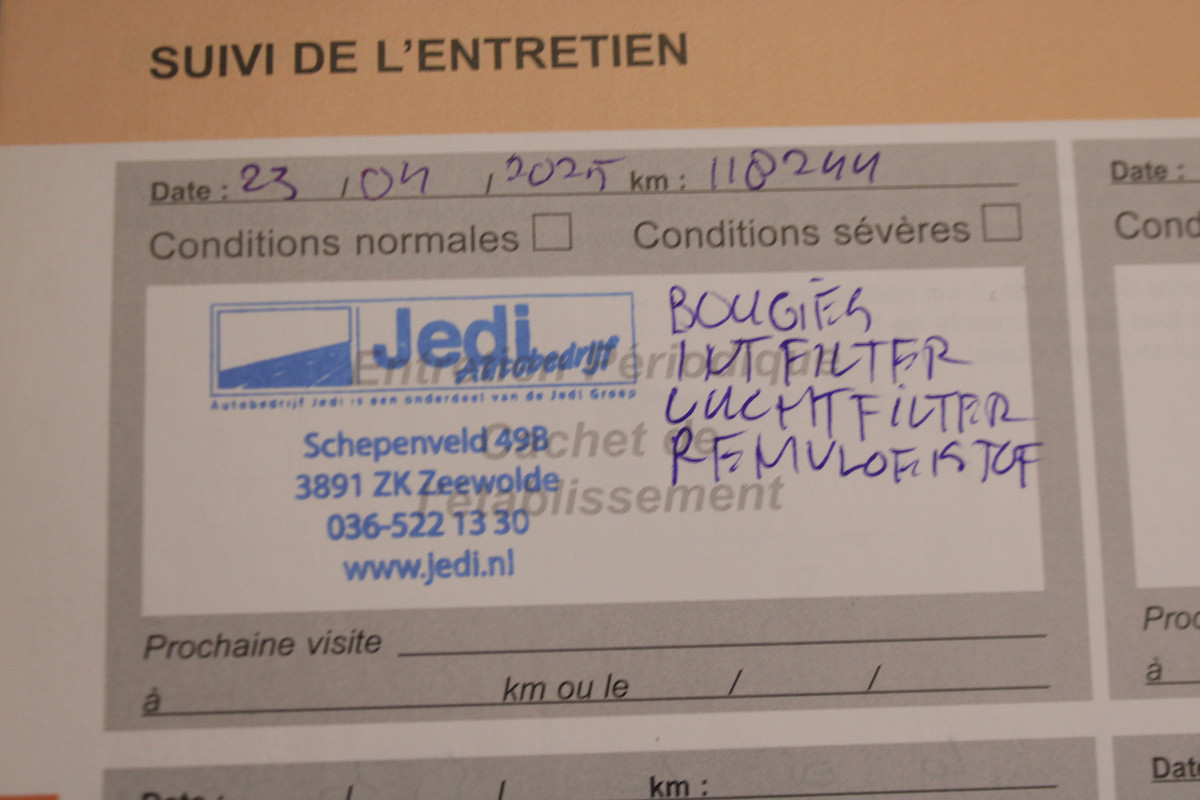 SUIVI DE L'ENTRETIEN
Date : 23 / 04 / 2025 km : 118244
Conditions normales
Conditions sévères
Jedi
Autobedrijf
Autobedrijf Jedi is een onderdeel van de Jedi Groep
Entretien Périodique
Cachet de
l'établissement
Schepenveld 49B
3891 ZK Zeewolde
036-522 13 30
www.jedi.nl
BOUGIES
INT FILTER
LUCHTFILTER
REMVLOEISTOF
Prochaine visite
à km ou le / /
Date : / / km :
Date :
Cond
Proc
à
Date